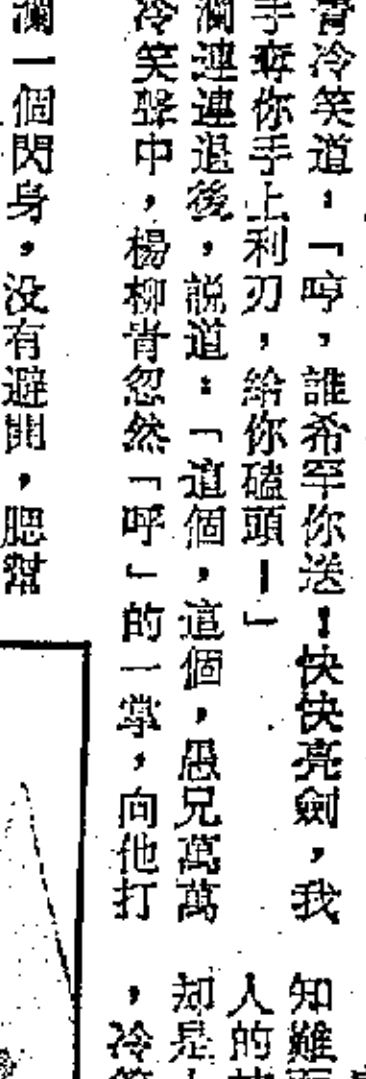 青冷笑道：「哼，誰希罕你送！快快亮劍，我
手奪你手上利刃，給你磕頭！」
瀾連連退後，説道：「這個，這個，愚兄萬萬
冷笑聲中，楊柳青忽然「呼」的一掌，向他打
瀾一個閃身，没有避開，腮幫
知難
人的
却是
，冷